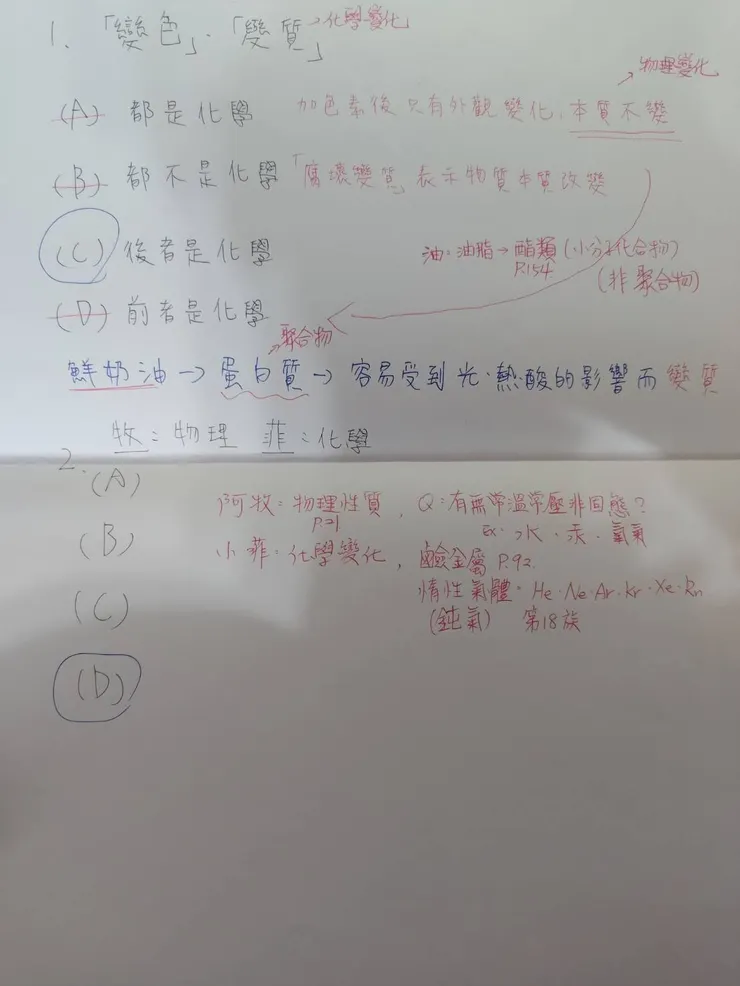 1、「變色」、「變質」→化學變化
(A) 都是化學 加色素後只有外觀變化,本質不變→物理變化
(B) 都不是化學「腐壞變質」表示物質本質改變
(C) 後者是化學
油:油脂→酯類(小分子化合物)
P.154 (非聚合物)
(D) 前者是化學
→聚合物
鮮奶油→蛋白質→容易受到光、熱、酸的影響而變質
2. 牧:物理 菲:化學
(A)
阿牧:物理性質, Q:有無常溫常壓非固態?
P.21 Ex. 水、汞、氧氣
(B)
小菲:化學變化, 鹼金屬 P.92.
惰性氣體:He、Ne、Ar、Kr、Xe、Rn
(C)
(鈍氣) 第18族
(D)